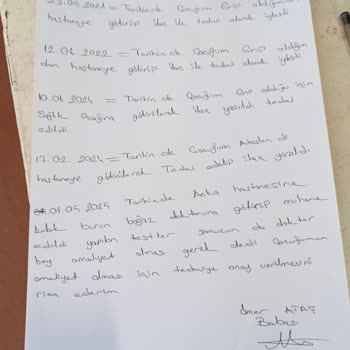 23.09.2021 = Tarihinde Çocuğum Grip aldığından
hastaneye götürüp ilaç ile tedavi olarak iyleşti
12.04.2022 = Tarihin de Çocuğum Grip aldığın
dan hastaneye götürüp ilaç ile tedavi olarak iyleşti
10.01.2024 = Tarihin de Çocuğum Grip aldığı için
Sağlık Ocağına götürülerek ilaç yazıldı tedavi
edildi.
17.02.2024 = Tarihin de Çocuğum Ateşlen di
hastaneye götürülerek Tedavi edilip ilaç yazıldı
01.09.2025 Tarihinde Anka hastanesine
kulak burun boğaz doktoruna götürüp muhane
edildi yapılan testler sonucun da doktor
bey ameliyat olması gerek dedi Çocuğumun
ameliyat olması için tedaviye onay verilmesini
rica ederim
Ömer ATAŞ
Babası